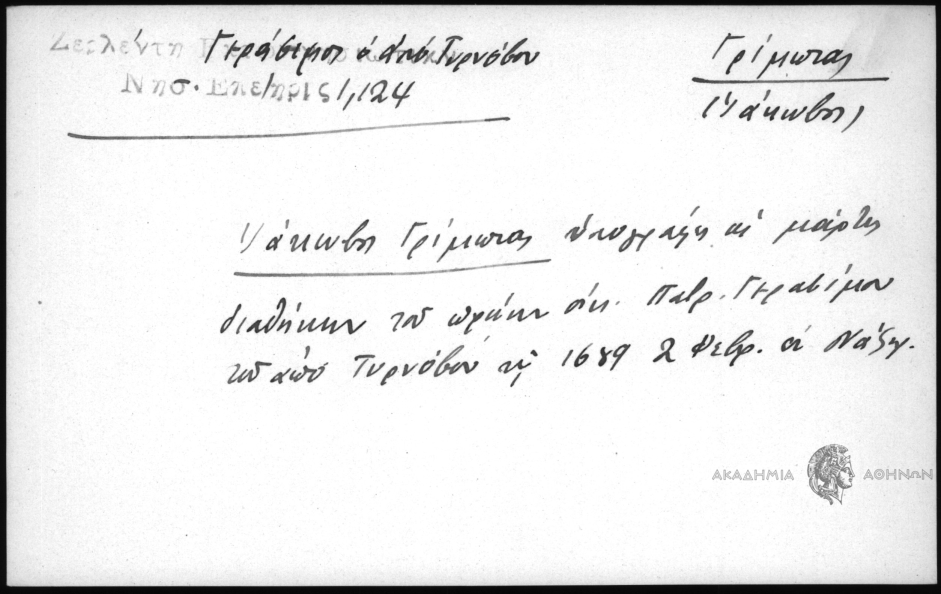 Ζερλέντη Γεράσιμος ὁ ἀπό Τυρνόβου
Νησ. Επετηρίς 1, 124
Γρίμπιας
(Ἰάκωβος)
Ἰάκωβος Γρίμπιας ὑπογράφει ὡς μάρτυς
διαθήκην τοῦ πρώην οἰκ. Πατρ. Γερασίμου
τοῦ ἀπό Τυρνόβου τῇ 1689 2 Φεβρ. ἐν Νάξῳ.
ΑΚΑΔΗΜΙΑ ΑΘΗΝΩΝ